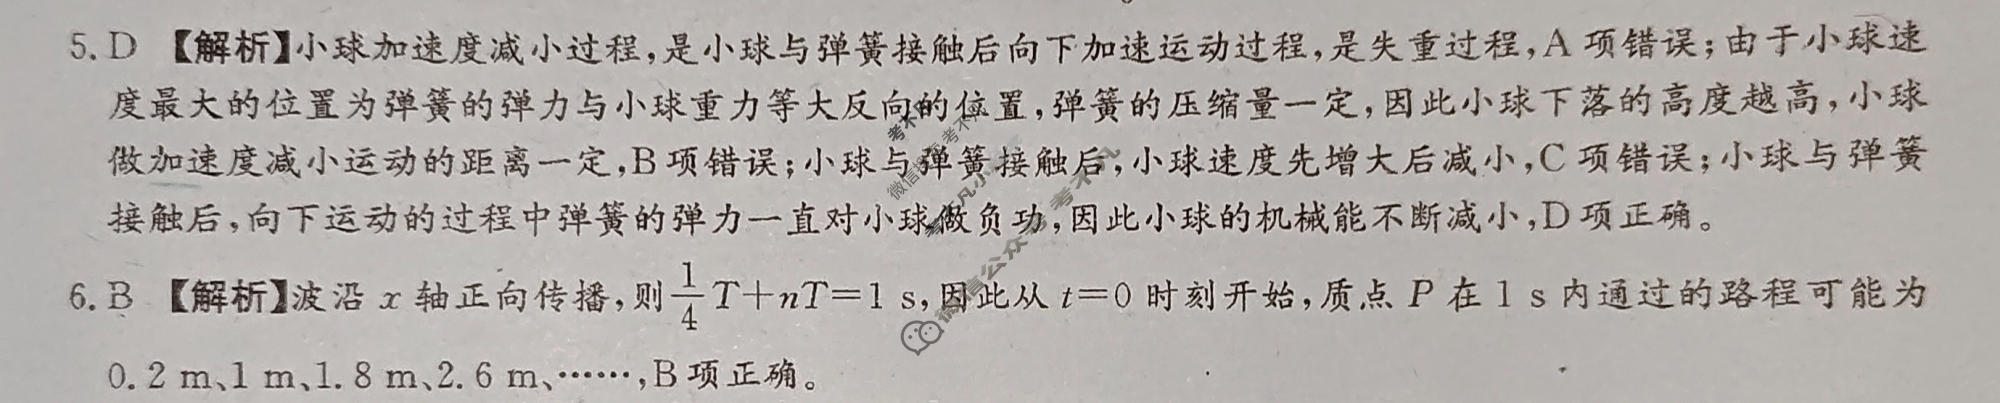 5. D 【解析】小球加速度减小过程,是小球与弹簧接触后向下加速运动过程,是失重过程,A 项错误;由于小球速
度最大的位置为弹簧的弹力与小球重力等大反向的位置,弹簧的压缩量一定,因此小球下落的高度越高,小球
做加速度减小运动的距离一定,B 项错误;小球与弹簧接触后,小球速度先增大后减小,C 项错误;小球与弹簧
接触后,向下运动的过程中弹簧的弹力一直对小球做负功,因此小球的机械能不断减小,D 项正确。
6. B 【解析】波沿 x 轴正向传播,则 1/4 T+nT=1 s,因此从 t=0 时刻开始,质点 P 在 1 s 内通过的路程可能为
0.2 m、1 m、1.8 m、2.6 m、……,B 项正确。